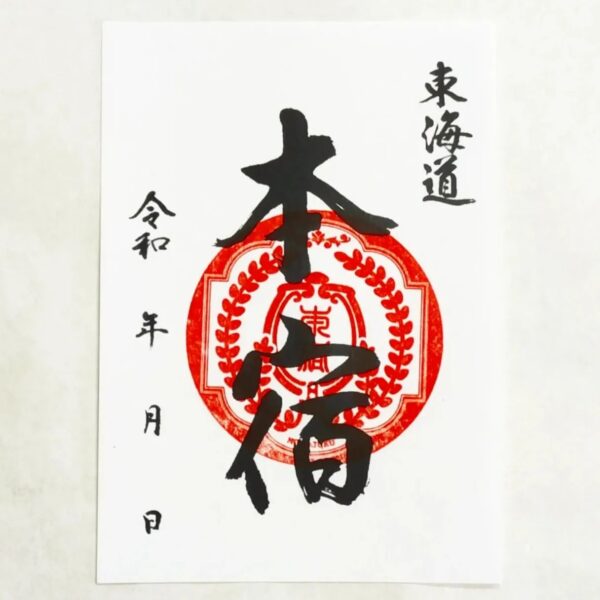 東海道
本宿
令和 年 月 日